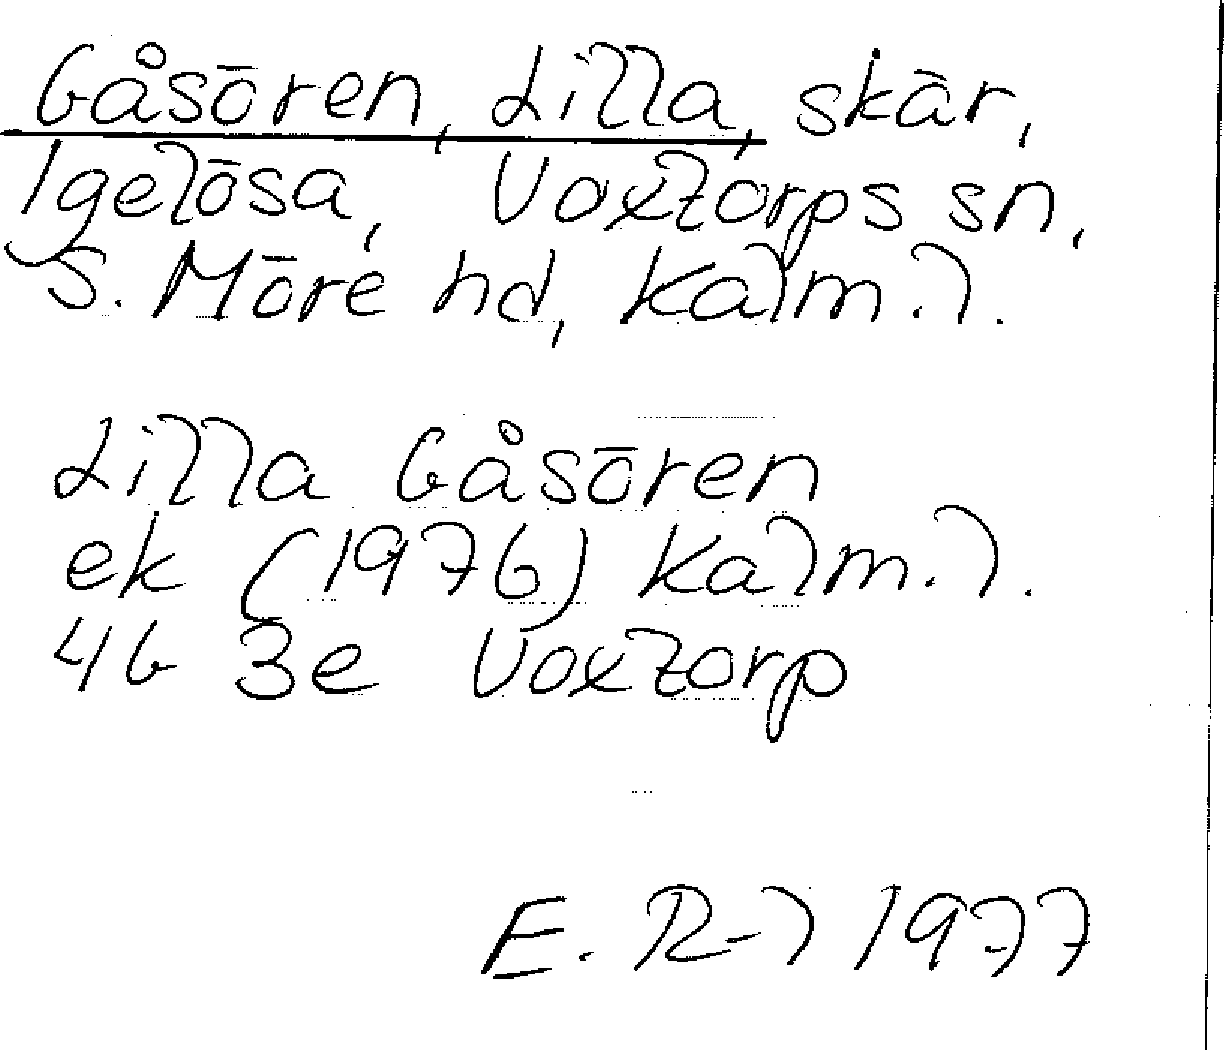 Gåsören, Lilla, skär,
Igelösa, Voxtorps sn,
S. Möre hd, Kalm. l.
Lilla Gåsören
ek (1976) Kalm. l.
4G 3e Voxtorp
E. R-l 1977